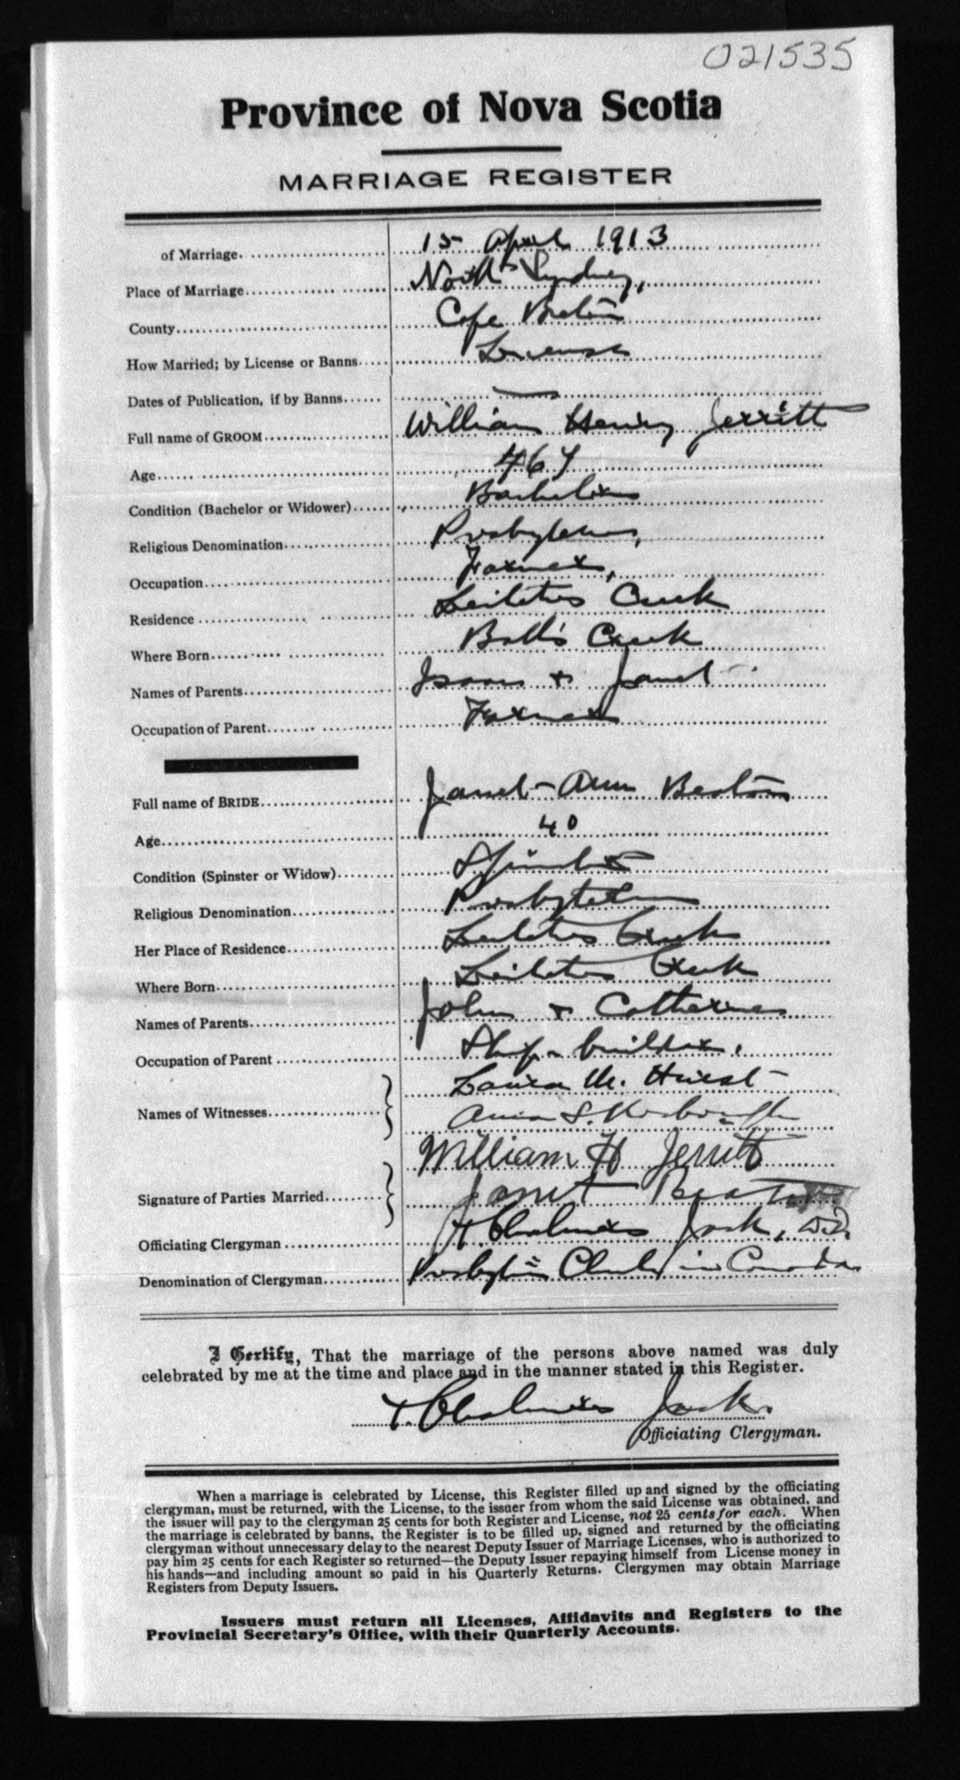 021535
Province of Nova Scotia
MARRIAGE REGISTER
of Marriage 15 April 1913
Place of Marriage North Sydney,
County Cape Breton
How Married; by License or Banns License
Dates of Publication, if by Banns —
Full name of GROOM William Henry Jerrett
Age 46 y
Condition (Bachelor or Widower) Bachelor
Religious Denomination Presbyterian,
Occupation Farmer,
Residence Leitches Creek
Where Born Ball's Creek
Names of Parents Isaac & Janet
Occupation of Parent Farmer
Full name of BRIDE Janet Ann Beaton
Age 40
Condition (Spinster or Widow) Spinster
Religious Denomination Presbyterian
Her Place of Residence Leitches Creek
Where Born Leitches Creek
Names of Parents John & Catherine
Occupation of Parent Ship-builder.
Names of Witnesses Laura M. Hurst
Anna S.
William H Jerritt
Signature of Parties Married Janet Beaton
Officiating Clergyman T. Chalmers Jack, D.D.
Denomination of Clergyman Presbytn Church in Canada
I Certify, That the marriage of the persons above named was duly
celebrated by me at the time and place and in the manner stated in this Register.
T. Chalmers Jack.
Officiating Clergyman.
When a marriage is celebrated by License, this Register filled up and signed by the officiating
clergyman, must be returned, with the License, to the issuer from whom the said License was obtained, and
the issuer will pay to the clergyman 25 cents for both Register and License, not 25 cents for each. When
the marriage is celebrated by banns, the Register is to be filled up, signed and returned by the officiating
clergyman without unnecessary delay to the nearest Deputy Issuer of Marriage Licenses, who is authorized to
pay him 25 cents for each Register so returned—the Deputy Issuer repaying himself from License money in
his hands—and including amount so paid in his Quarterly Returns. Clergymen may obtain Marriage
Registers from Deputy Issuers.
Issuers must return all Licenses, Affidavits and Registers to the
Provincial Secretary's Office, with their Quarterly Accounts.